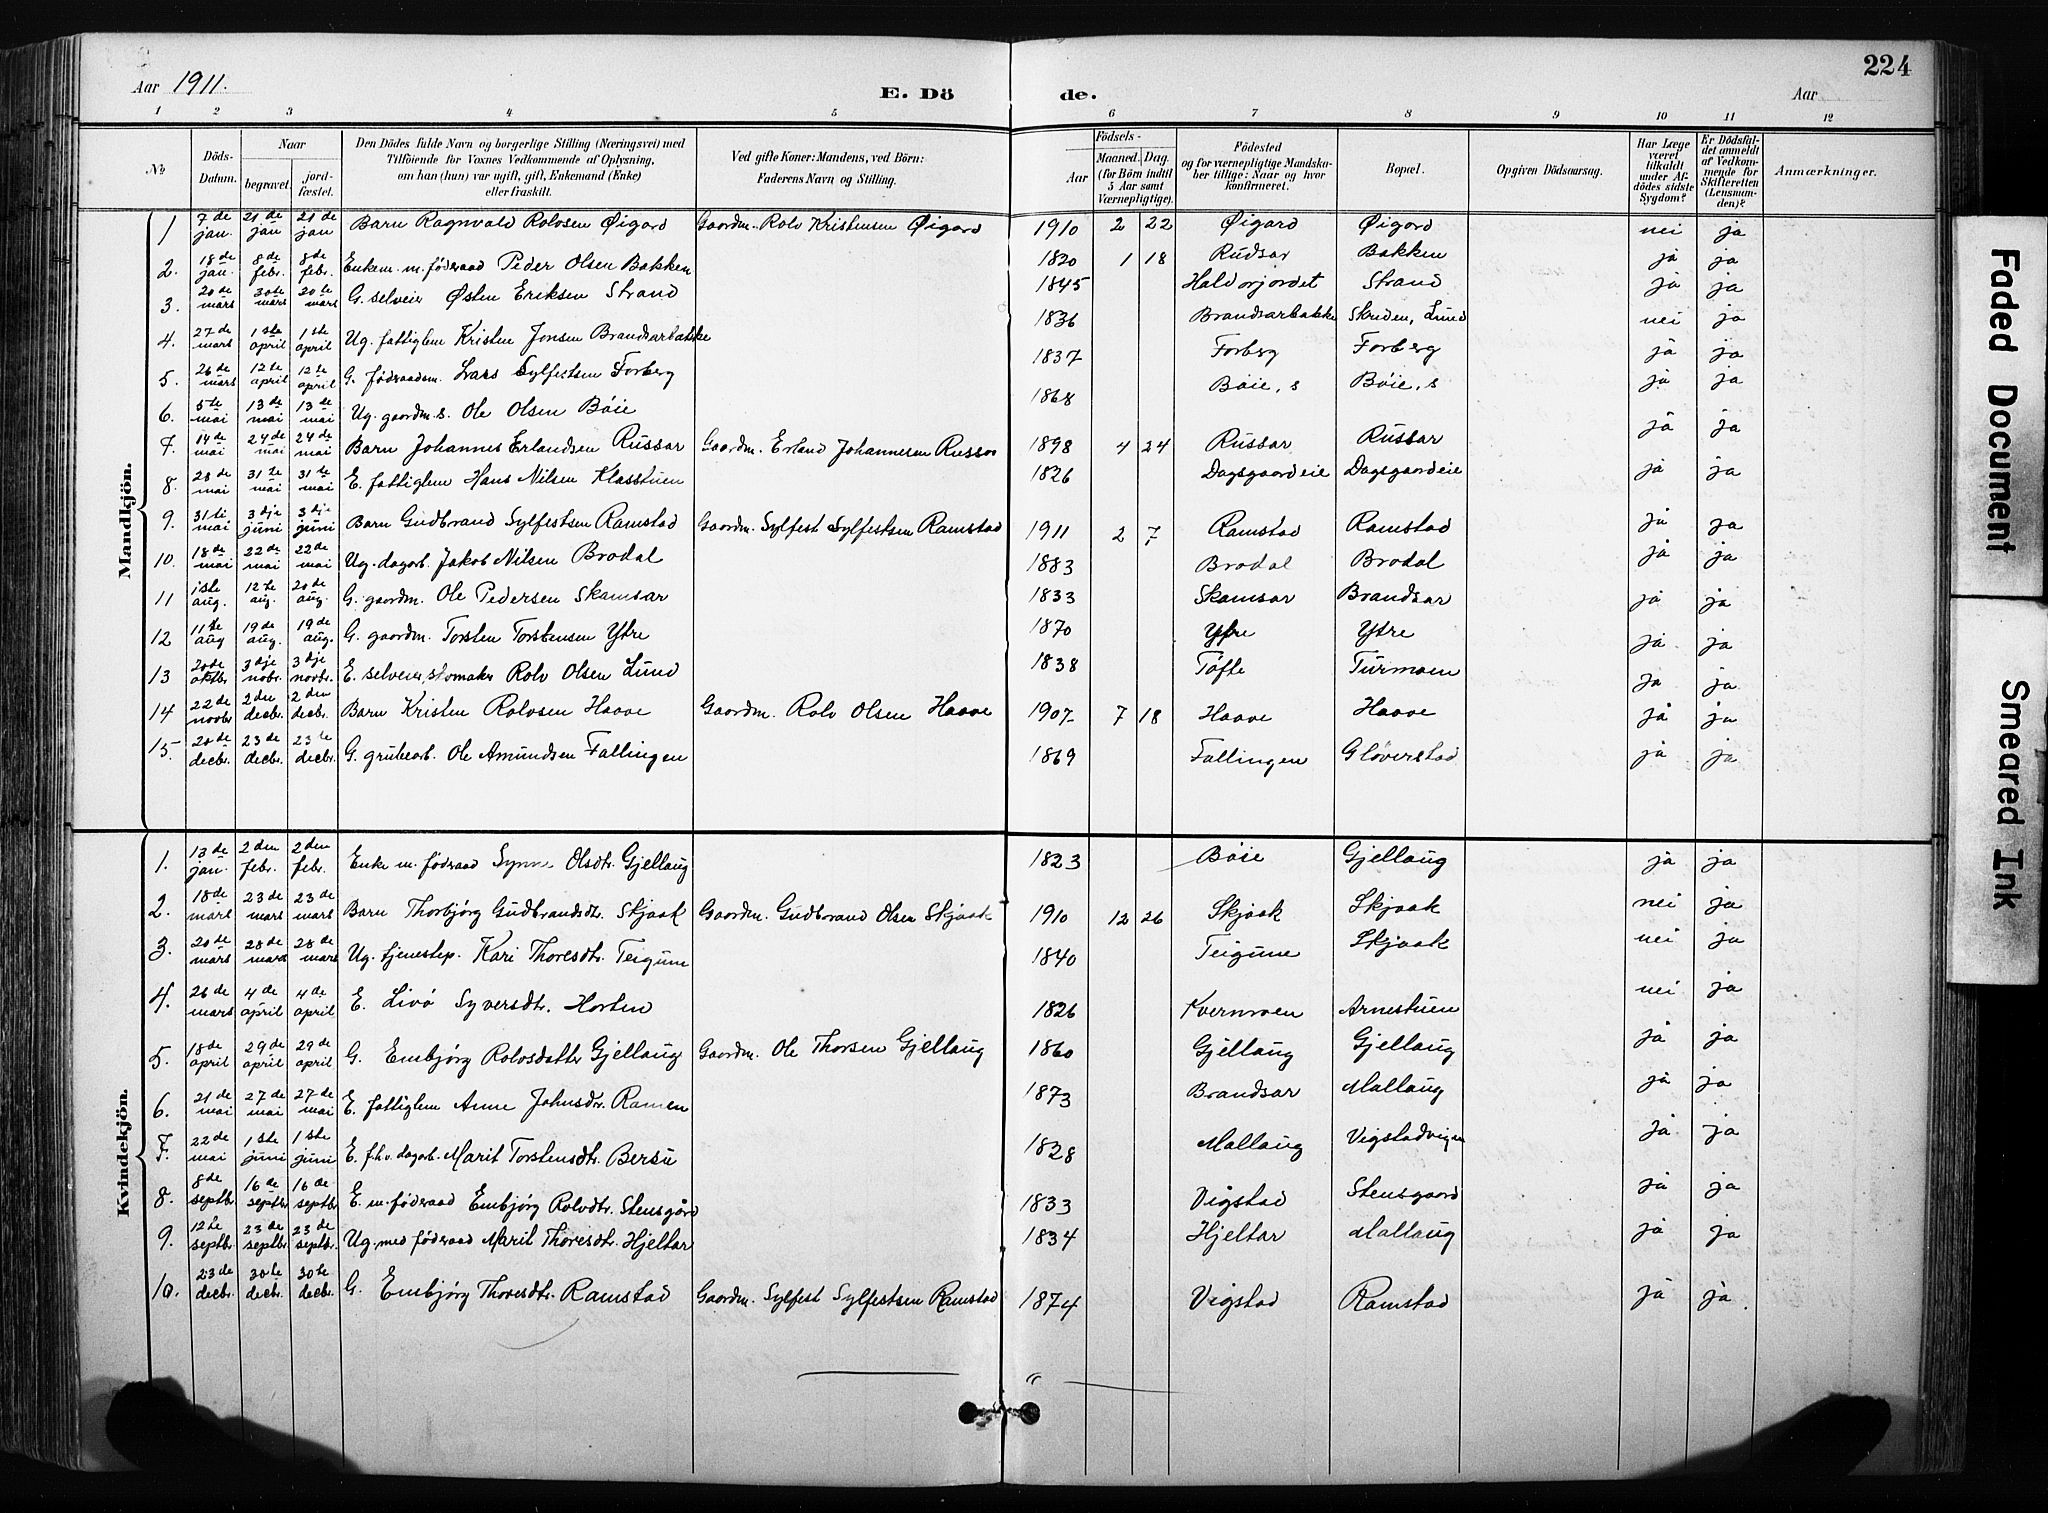 224
Aar 1911. E. Dö de. Aar
1 2 3 4 5 6 7 8 9 10 11 12
No Döds-Datum. Naar begravet. jord-fæstet. Den Dödes fulde Navn og borgerlige Stilling (Næringsvei) med Tilföiende for Voxnes Vedkommende af Oplysning, om han (hun) var ugift, gift, Enkemand (Enke) eller fraskilt. Ved gifte Koner: Mandens, ved Börn: Faderens Navn og Stilling. Födsels- Aar Maaned. Dag. (for Börn indtil 5 Aar samt Værnepligtige). Födested og for værnepligtige Mandska-ber tillige: Naar og hvor konfirmeret. Bopæl. Opgiven Dödsaarsag. Har Læge været tilkaldt under Af-dödes sidste Sygdom? Er Dödsfal-det anmeldt af Vedkom-mende for Skifteretten (Lensman-den)? Anmærkninger.
Mandkjön.
1 7de jan. 21de jan 21de jan Barn Ragnvald Rolvsen Øigard Gaardm. Rolv Kristensen Øigard 1910 2 22 Øigard Øigard nei ja
2. 18de jan. 8de febr. 8de febr. Enkem. m. föderaad Peder Olsen Bakken 1820 1 18 Rudsar Bakken ja ja
3. 20de mars 30te mars 20te mars G. selveier Østen Eriksen Strand 1845 Haldorjordet Strand ja ja
4. 27de mars 1ste april 1ste april Ug. fattiglem Kristen Jonsen Brandsarbakke 1836 Brandsarbakke Skriden, Lund nei ja
5. 26de mars 12te april 12te april G. föderaadsm. Lars Sylfestsen Forberg 1837 Forberg Forberg ja ja
6. 5te mai 13de mai 13de mai Ug. gaardm. s. Ole Olsen Böie 1868 Böie, s Böie, s ja ja
7. 14de mai 24de mai 24de mai Barn Johannes Erlandsen Russar Gaardm. Erland Johannesen Russar 1898 4 24 Russar Russar ja ja
8. 23de mai 31te mai 31te mai E. fattiglem Hans Nilsen Klasstuen 1826 Dagsgaardeie Dagsgaardeie ja ja
9. 31te mai 3dje juni 3dje juni Barn Gudbrand Sylfestsen Ramstad Gaardm. Sylfest Sylfestsen Ramstad 1911 2 7 Ramstad Ramstad ja ja
10. 18de mai 22de mai 22de mai Ug. dagarb. Jakob Nilsen Brodal 1883 Brodal Brodal ja ja
11 1ste aug. 12te aug. 20de aug. G. gaardm. Ole Pedersen Skamsar 1833 Skamsar Brandsar ja ja
12 11te aug 19de aug. 19de aug. G. gaardm. Torsten Torstensen Ytre 1870 Ytre Ytre ja ja
13 20de oktbr 3dje nobr. 3dje novbr. E. selveier, skomaker Rolv Olsen Lund 1838 Töfte Turmoen ja ja
14 22de novbr 2den decbr. 2den decbr. Barn Kristen Rolvsen Haave Gaardm. Rolv Olsen Haave 1907 7 18 Haave Haave ja ja
15 20de decbr. 23de decbr. 23te decbr. G. grubearb. Ole Amundsen Fallingen 1869 Fallingen Glöverstad ja ja
Kvindekjön.
1. 13de jan. 2den febr. 2den febr. Enke m. föderaad Synn Olsdtr. Gjellaug 1823 Böie Gjellaug ja ja
2. 18de mars 23de mars 23de mars Barn Thorbjörg Gudbrandsdtr. Skjaak Gaardm. Gudbrand Olsen Skjaak 1910 12 26 Skjaak Skjaak nei ja
3. 20de mars 28de mars 28de mars Ug. tjenestep. Kari Thoresdtr. Teigum 1840 Teigum Skjaak nei ja
4. 26de mars 4de april 4de april E. Livö Syversdtr. Horten 1826 Kvernmoen Arnestuen nei ja
5. 18de april 29de april 29de april G. Embjörg Rolvsdatter Gjellaug Gaardm. Ole Thorsen Gjellaug 1860 Gjellaug Gjellaug ja ja
6. 21de mai 27de mai 27de mai E. fattiglem Anne Johnsdtr. Ramen 1873 Brandsar Mallaug ja ja
7. 22de mai 1ste juni 1ste juni E. fhv. dagarb. Marit Torstensdtr. Bersu 1828 Mallaug Vigstadvigen ja ja
8. 8de septbr 16de septbr 16de septbr E. m. föderaad Embjörg Rolvdtr. Stensgård 1833 Vigstad Stensgaard ja ja
9. 12te septbr. 23de septbr. 23de septbr. Ug. med föderaad Marit Thoresdtr. Hjeltar 1834 Hjeltar Mallaug ja ja
10. 23de decbr. 30te decbr. 30te decbr. G. Embjörg Thoresdtr. Ramstad Gaardm. Sylfest Sylfestsen Ramstad 1874 Vigstad Ramstad ja ja
Faded Document
Smeared Ink